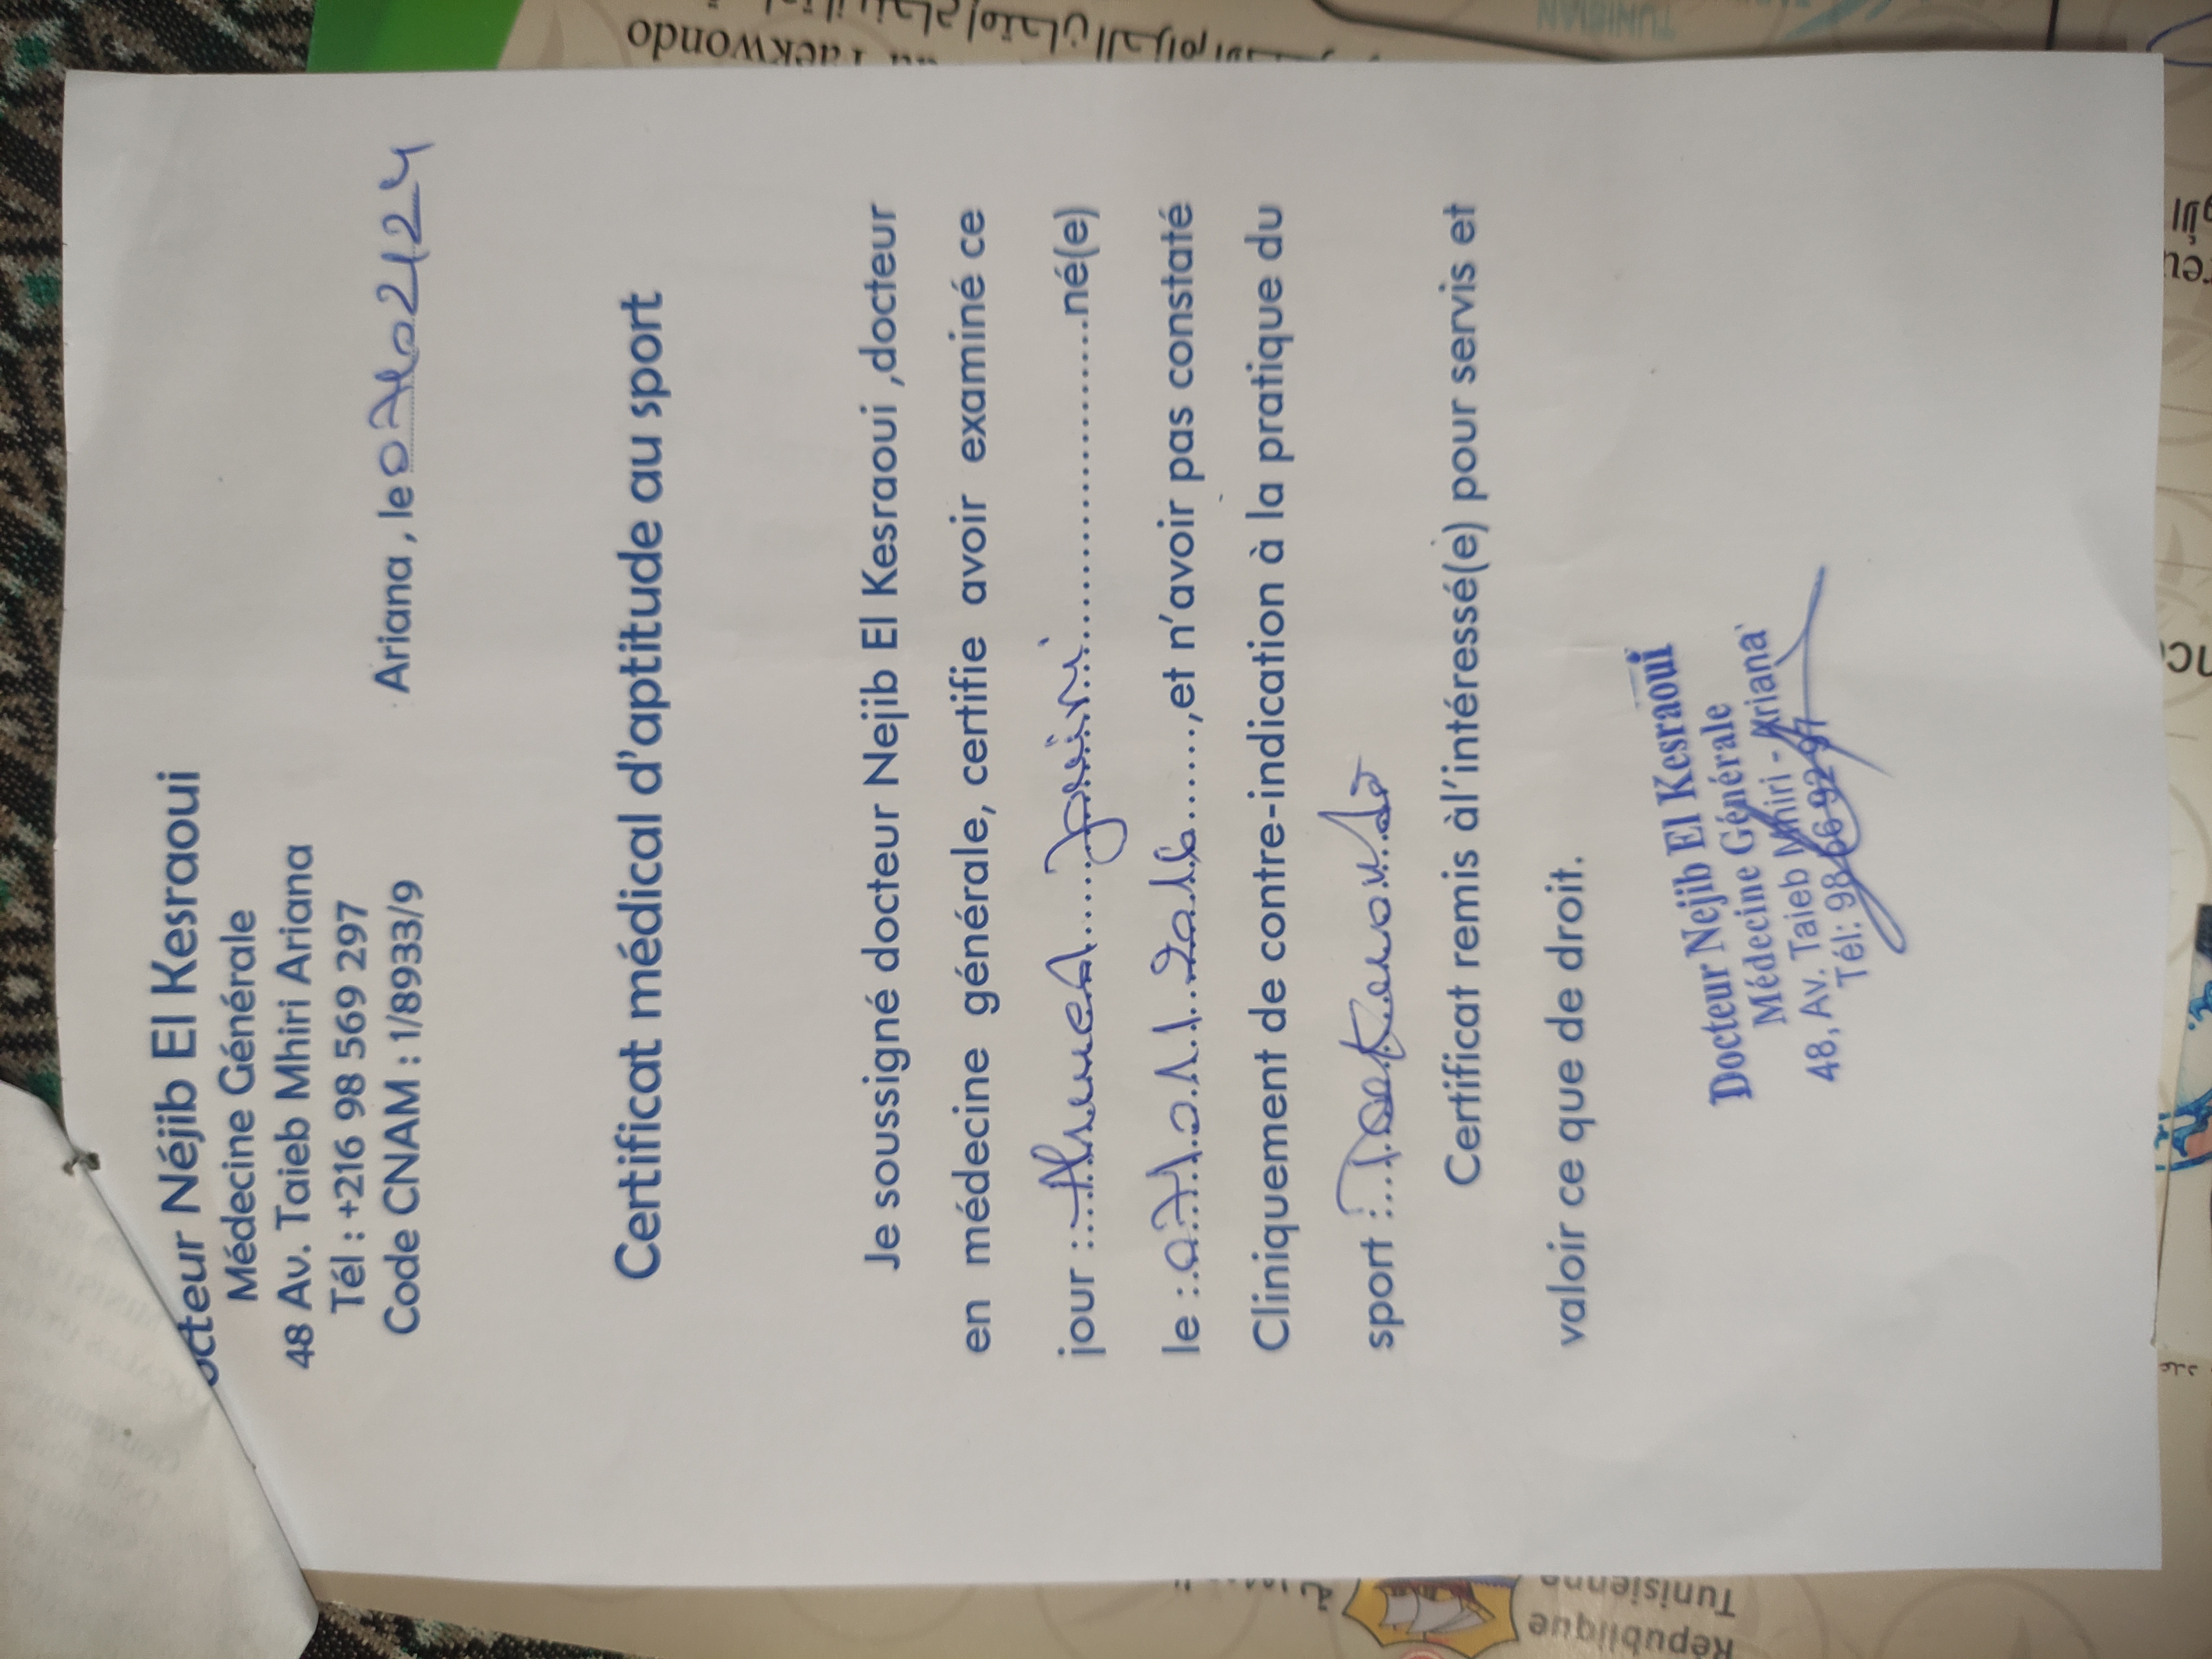 octeur Néjib El Kesraoui
Médecine Générale
48 Av. Taieb Mhiri Ariana
Tél : +216 98 569 297
Code CNAM : 1/8933/9
Ariana , le 07/02/24
Certificat médical d'aptitude au sport
Je soussigné docteur Nejib El Kesraoui ,docteur
en médecine générale, certifie avoir examiné ce
jour : Ahmed né(e)
le : ,et n'avoir pas constaté
Cliniquement de contre-indication à la pratique du
sport : Taekwondo
Certificat remis àl'intéressé(e) pour servis et
valoir ce que de droit.
Docteur Nejib El Kesraoui
Médecine Générale
48, Av. Taieb Mhiri - Ariana
Tél: 98
Taekwondo
TUNISIAN
République
Tunisienne